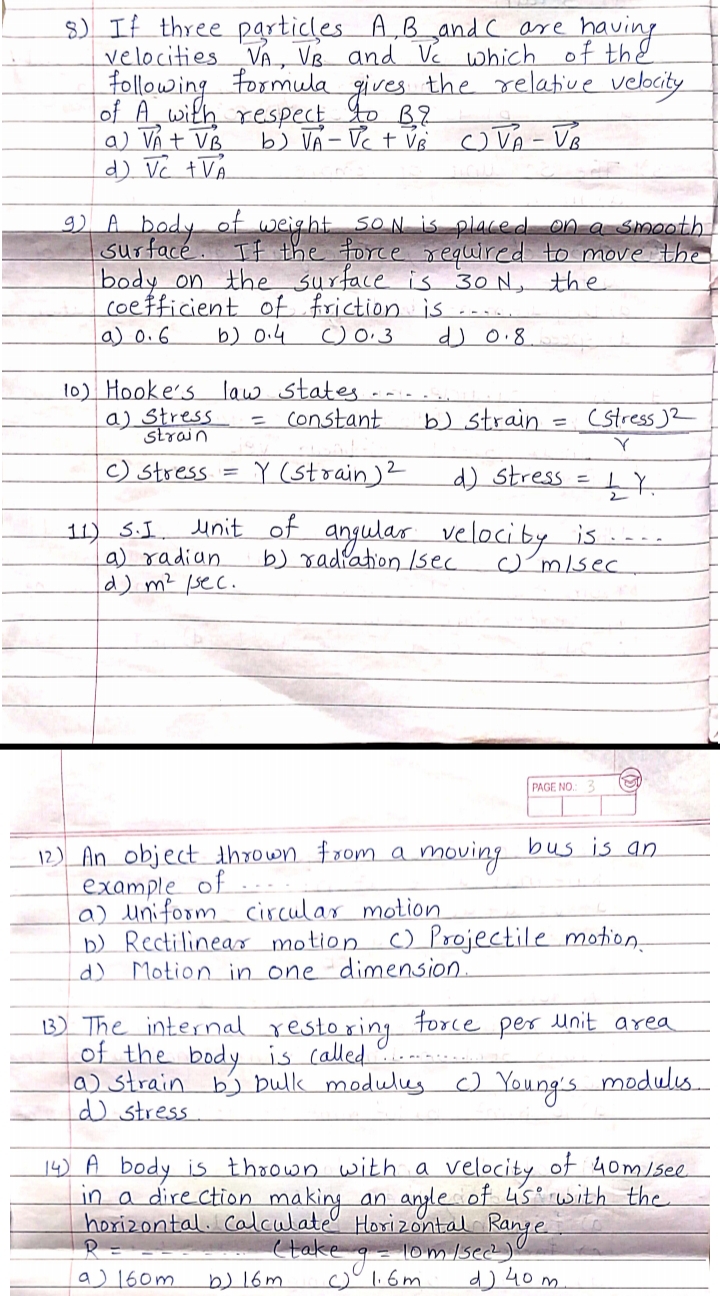 8) If three particles A, B and C are having
velocities V⃗A, V⃗B and V⃗c which of the
following formula gives the relative velocity
of A with respect to B?
a) V⃗A + V⃗B b) V⃗A - V⃗c + V⃗B c) V⃗A - V⃗B
d) V⃗c + V⃗A
9) A body of weight 50 N is placed on a smooth
surface. If the force required to move the
body on the surface is 30 N, the
coefficient of friction is .....
a) 0.6 b) 0.4 c) 0.3 d) 0.8
10) Hooke's law states ......
a) Stress/strain = constant b) strain = (stress)²/Y
c) stress = Y (strain)² d) stress = 1/2 Y.
11) S.I. unit of angular velocity is ....
a) radian b) radiation/sec c) m/sec
d) m²/sec.
PAGE NO.: 3
12) An object thrown from a moving bus is an
example of ....
a) Uniform circular motion
b) Rectilinear motion c) Projectile motion.
d) Motion in one dimension.
13) The internal restoring force per unit area
of the body is called ..........
a) strain b) bulk modulus c) Young's modulus.
d) stress
14) A body is thrown with a velocity of 40m/sec
in a direction making an angle of 45° with the
horizontal. Calculate Horizontal Range
R = ---....... (take g = 10m/sec²)
a) 160m b) 16m c) 1.6m d) 40 m